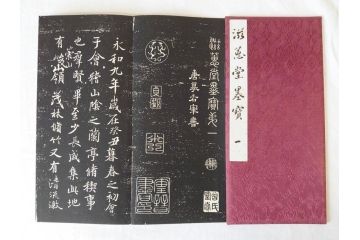 滋蕙堂墨寶 一
滋蕙堂墨寶第一
唐摹右軍書
貞觀
永和九年歲在癸丑暮春之初會
于會稽山陰之蘭亭脩稧事
也羣賢畢至少長咸集此地
有崇山峻領茂林脩竹又有清流激